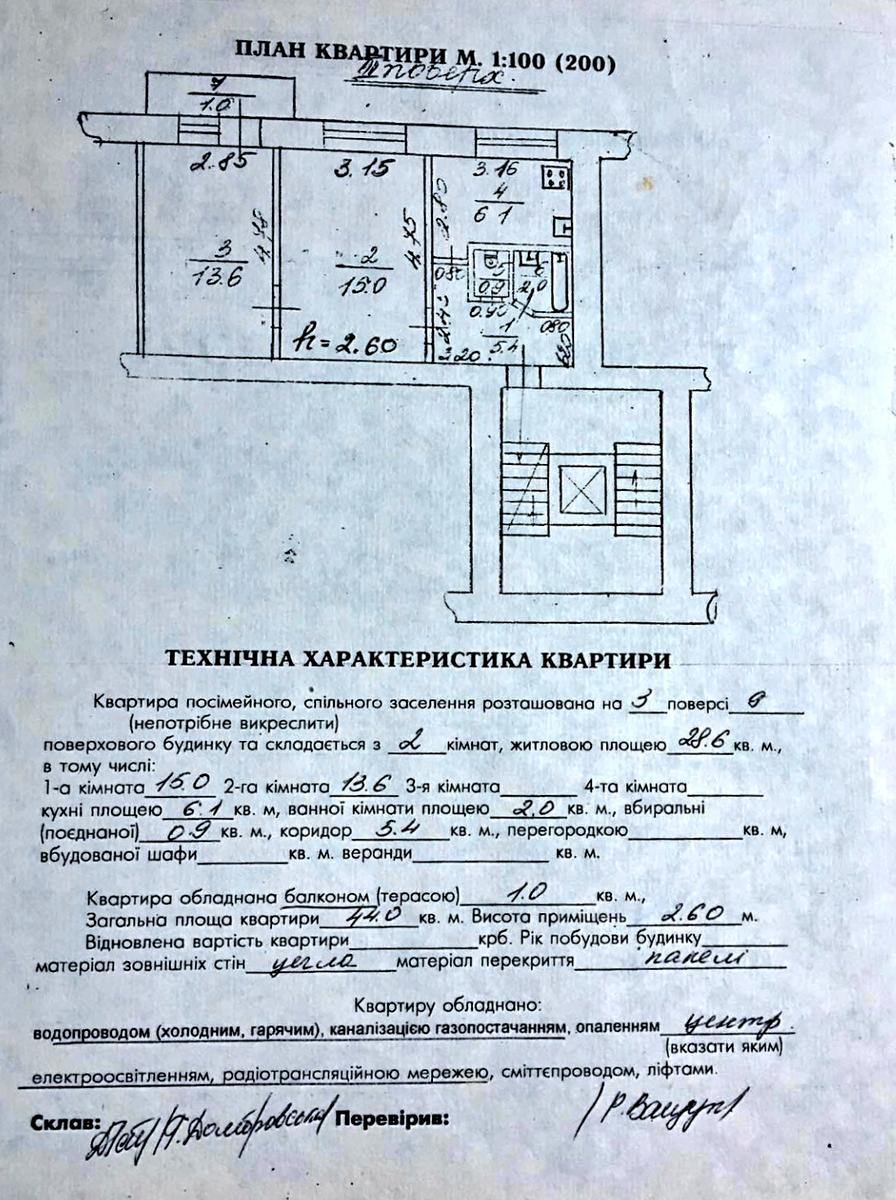 ПЛАН КВАРТИРИ М. 1:100 (200)
III поверх.
7
1.0
2.85
3.15
3.16
4
6 1
2.80
4.78
4.75
3
13.6
2
15.0
080
5
0.9
6
2.0
0.90
2.45
1
5.4
080
h = 2.60
ТЕХНІЧНА ХАРАКТЕРИСТИКА КВАРТИРИ
Квартира посімейного, спільного заселення розташована на 3 поверсі 9
(непотрібне викреслити)
поверхового будинку та складається з 2 кімнат, житловою площею 28.6 кв. м.,
в тому числі:
1-а кімната 15.0 2-га кімната 13.6 3-я кімната 4-та кімната
кухні площею 6.1 кв. м, ванної кімнати площею 2.0 кв. м., вбиральні
(поєднаної) 0.9 кв. м., коридор 5.4 кв. м., перегородкою кв. м,
вбудованої шафи кв. м. веранди кв. м.
Квартира обладнана балконом (терасою) 1.0 кв. м.,
Загальна площа квартири 44.0 кв. м. Висота приміщень 2.60 м.
Відновлена вартість квартири крб. Рік побудови будинку
матеріал зовнішніх стін цегла матеріал перекриття панелі
Квартиру обладнано:
водопроводом (холодним, гарячим), каналізацією газопостачанням, опаленням центр.
(вказати яким)
електроосвітленням, радіотрансляційною мережею, сміттєпроводом, ліфтами.
Склав: Перевірив: